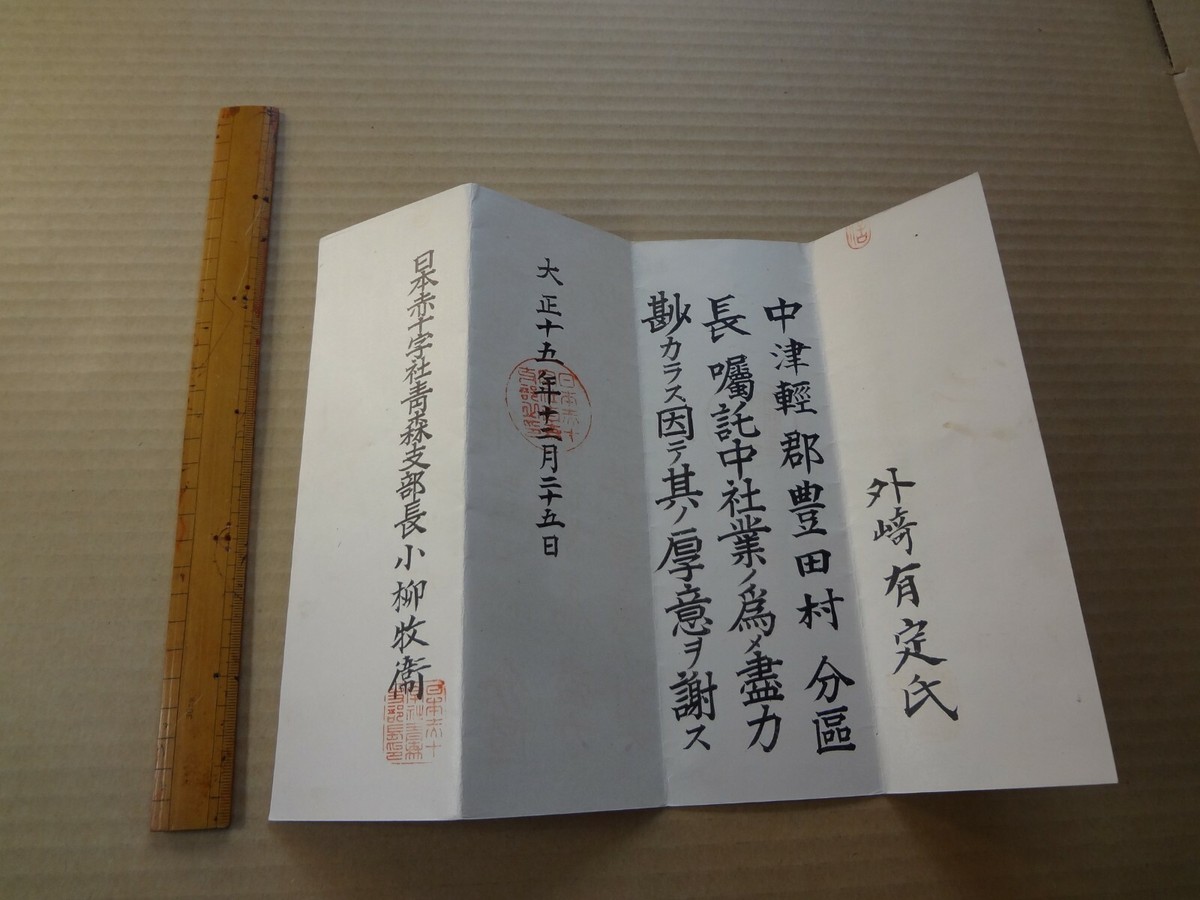 外崎有定氏
中津輕郡豊田村分區
長囑託中社業ノ爲メ盡力
尠カラス因テ其ノ厚意ヲ謝ス
大正十五年十二月二十五日
日本赤十字社青森支部長小柳牧衞